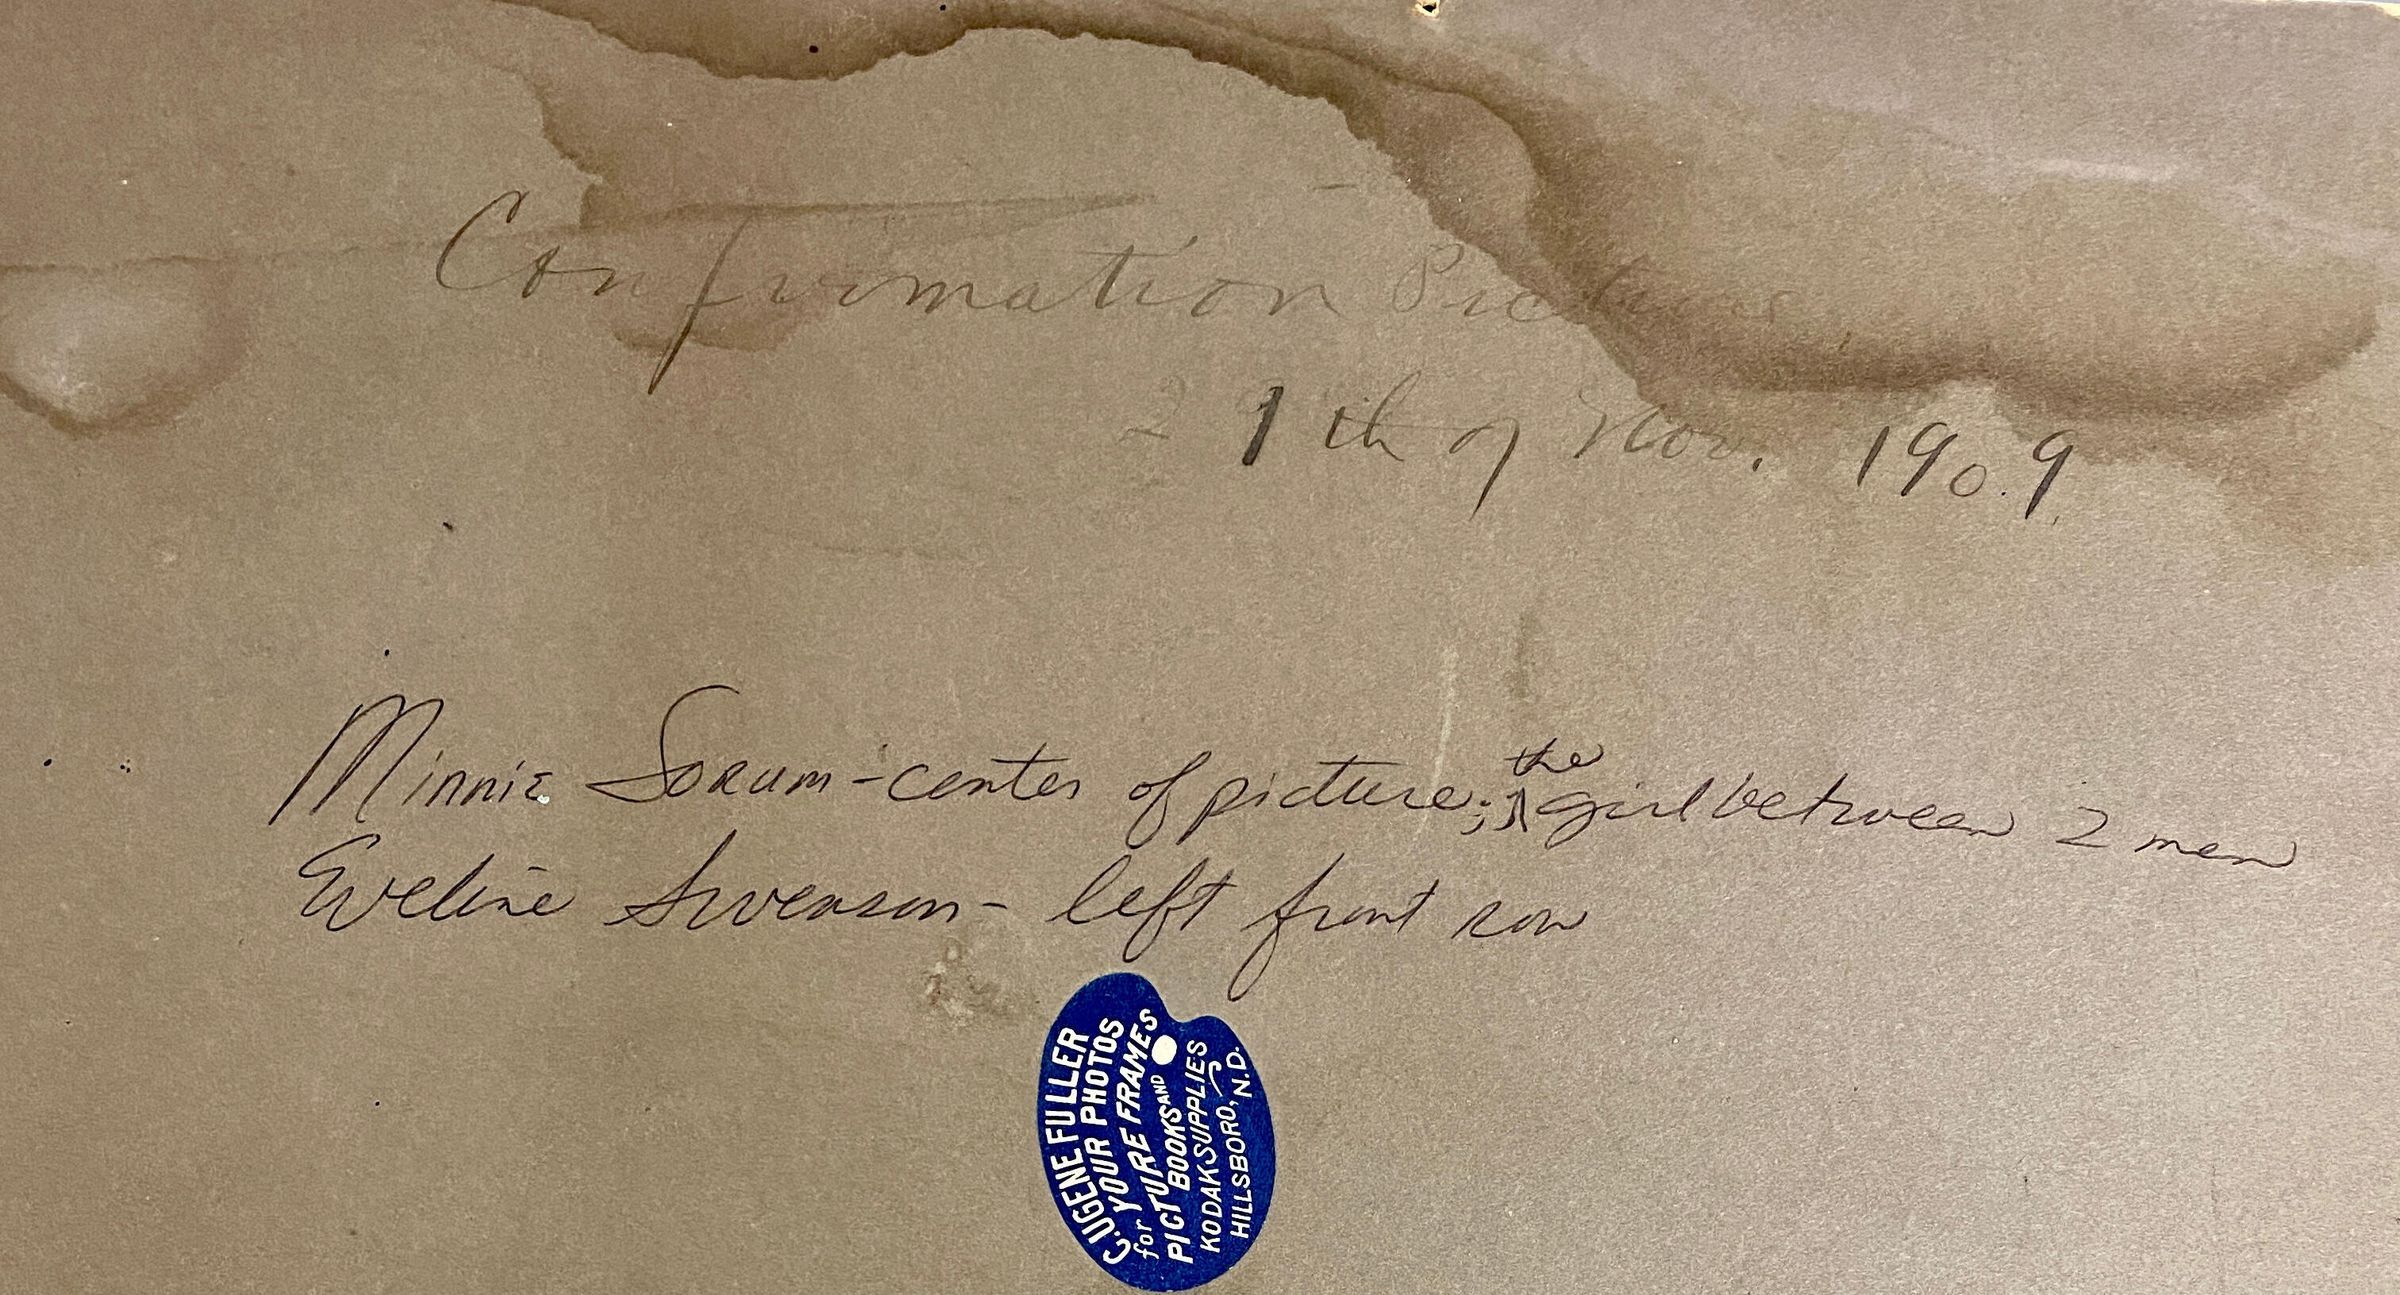 Confirmation Picture
21th of Nov. 1909
Minnie Sorum - center of picture; the girl between 2 men
Eveline Swenson - left front row
C. UGENE FULLER
for YOUR PHOTOS
PICTURE FRAMES
BOOKS AND
KODAK SUPPLIES
HILLSBORO, N.D.